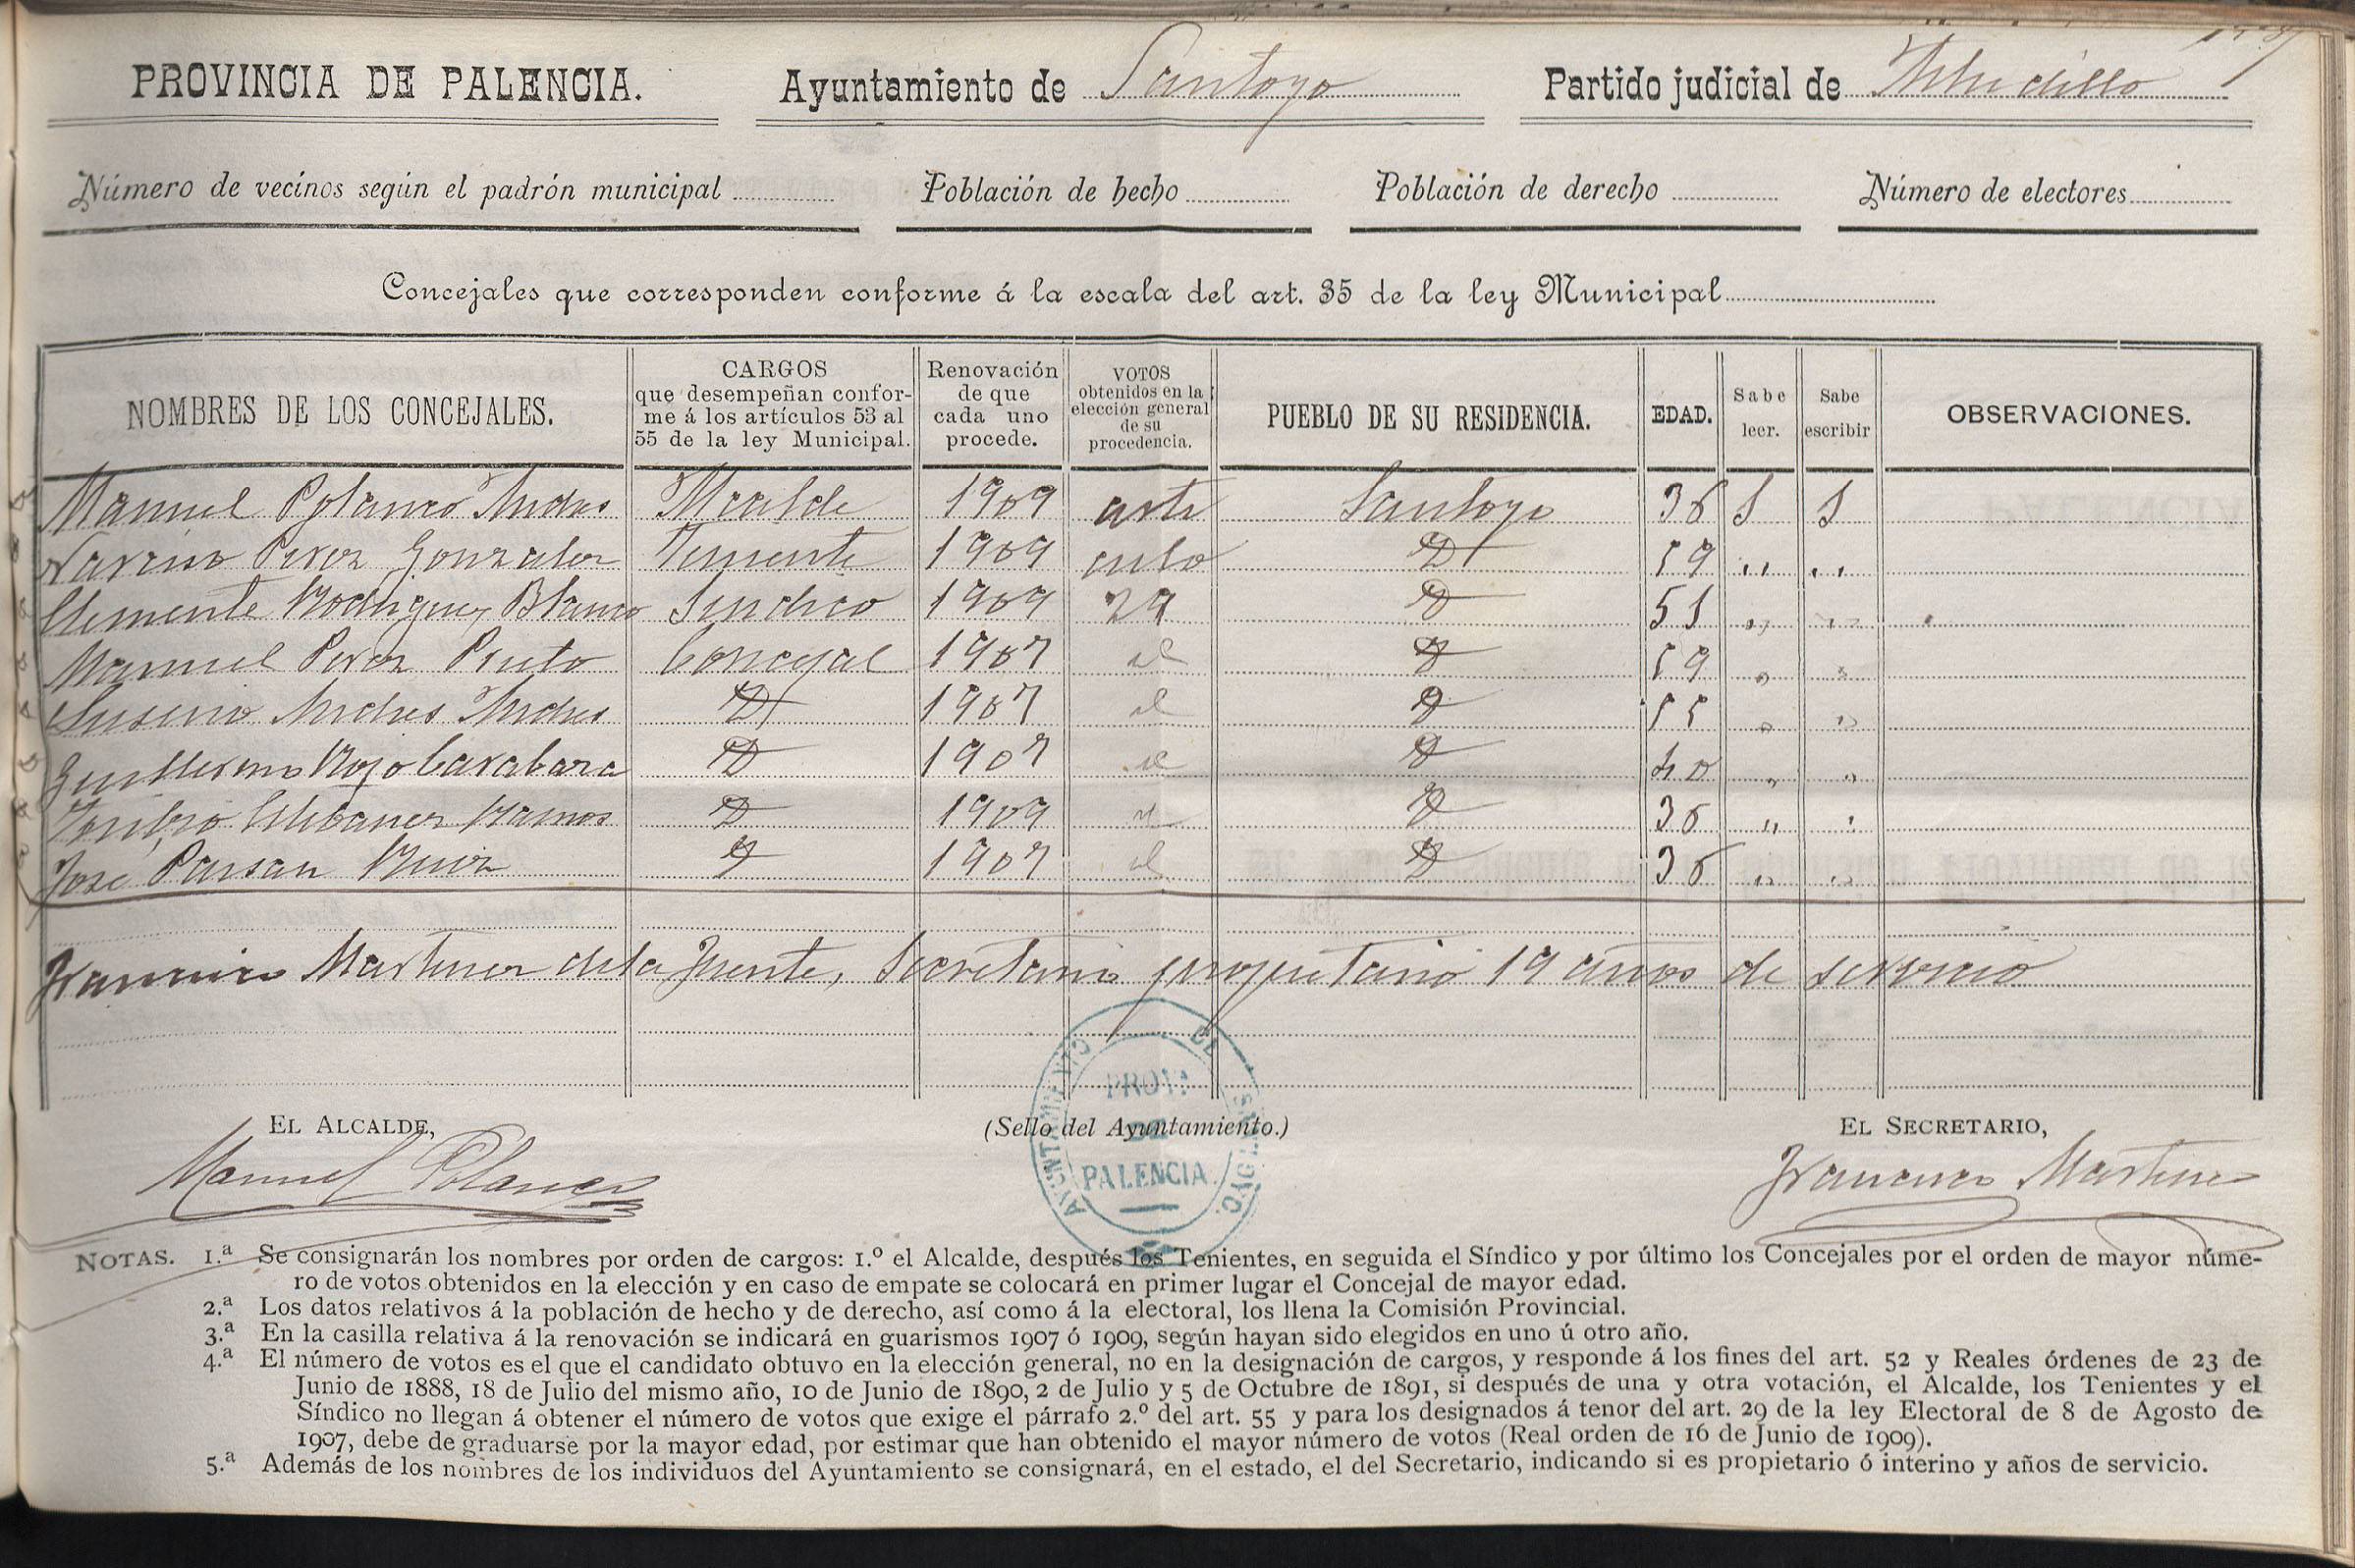 PROVINCIA DE PALENCIA. Ayuntamiento de Santoyo Partido judicial de
Número de vecinos según el padrón municipal Población de hecho Población de derecho Número de electores
Concejales que corresponden conforme á la escala del art. 35 de la ley Municipal
NOMBRES DE LOS CONCEJALES. CARGOS que desempeñan conforme á los artículos 53 al 55 de la ley Municipal. Renovación de que cada uno procede. VOTOS obtenidos en la elección general de su procedencia. PUEBLO DE SU RESIDENCIA. EDAD. Sabe leer. Sabe escribir OBSERVACIONES.
Manuel Polanco Andres Alcalde 1909 arti Santoyo 36 S S
Perez Gonzalez Teniente 1909 culo D 59 " "
Clemente Rodriguez Blanco Sindico 1909 29 D 51 " "
Manuel Perez Prieto Concejal 1907 D 59 " "
Andres Andres D 1907 D 55 " "
Guillermo Rojo D 1907 D 40 " "
Ramos D 1909 D 36 " "
José Ruiz D 1907 D 36 " "
Francisco Martinez de la Fuente, Secretario propietario 19 años de servicio
EL ALCALDE, (Sello del Ayuntamiento.) EL SECRETARIO,
AYUNTAMIENTO DE
PROV.ª
DE
PALENCIA.
Manuel Polanco Francisco Martinez
NOTAS. 1.ª Se consignarán los nombres por orden de cargos: 1.º el Alcalde, después los Tenientes, en seguida el Síndico y por último los Concejales por el orden de mayor núme-
ro de votos obtenidos en la elección y en caso de empate se colocará en primer lugar el Concejal de mayor edad.
2.ª Los datos relativos á la población de hecho y de derecho, así como á la electoral, los llena la Comisión Provincial.
3.ª En la casilla relativa á la renovación se indicará en guarismos 1907 ó 1909, según hayan sido elegidos en uno ú otro año.
4.ª El número de votos es el que el candidato obtuvo en la elección general, no en la designación de cargos, y responde á los fines del art. 52 y Reales órdenes de 23 de
Junio de 1888, 18 de Julio del mismo año, 10 de Junio de 1890, 2 de Julio y 5 de Octubre de 1891, si después de una y otra votación, el Alcalde, los Tenientes y el
Síndico no llegan á obtener el número de votos que exige el párrafo 2.º del art. 55 y para los designados á tenor del art. 29 de la ley Electoral de 8 de Agosto de
1907, debe de graduarse por la mayor edad, por estimar que han obtenido el mayor número de votos (Real orden de 16 de Junio de 1909).
5.ª Además de los nombres de los individuos del Ayuntamiento se consignará, en el estado, el del Secretario, indicando si es propietario ó interino y años de servicio.